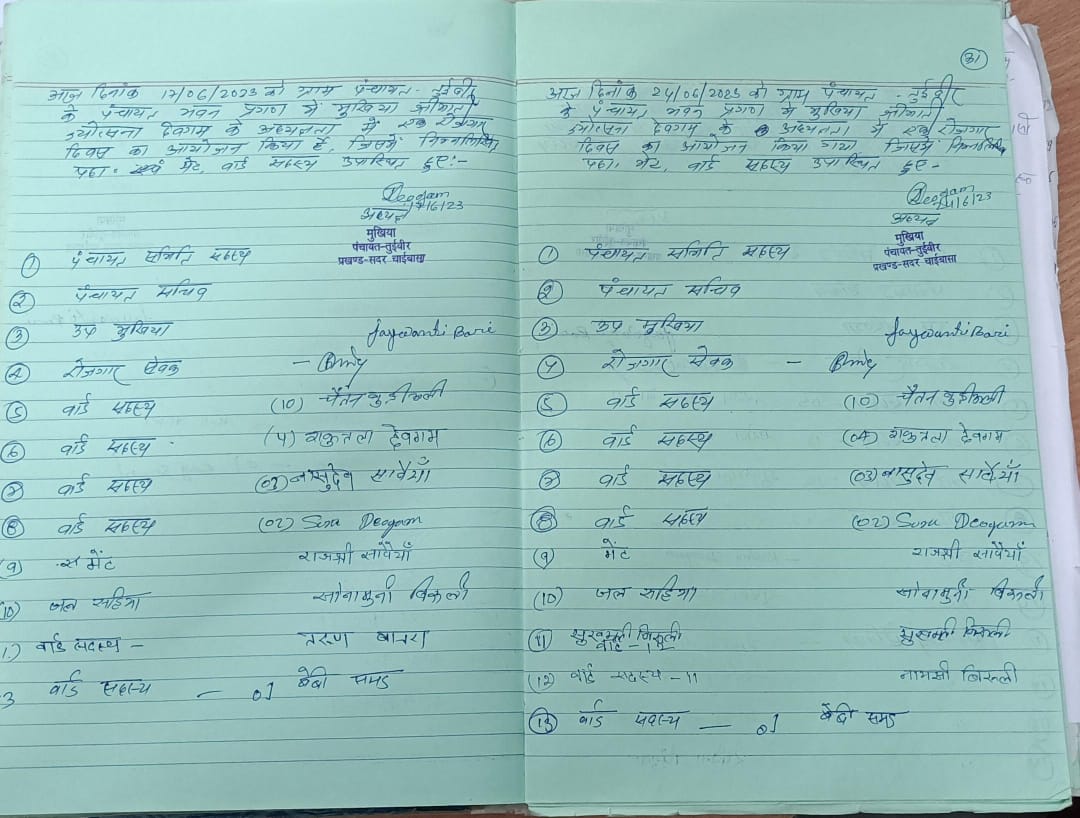 आज दिनांक 17/06/2023 को ग्राम पंचायत - तुईवीर
के पंचायत भवन प्रगण में मुखिया श्रीमती
ज्योत्सना देवगम के अध्यक्षता में एक रोजगार
दिवस का आयोजन किया है, जिसमें निम्नलिखित
मेट, वार्ड सदस्य उपस्थित हुए:-
Deogam
17/6/23
अध्यक्ष
मुखिया
पंचायत-तुईवीर
प्रखण्ड-सदर चाईबासा
① पंचायत समिति सदस्य
② पंचायत सचिव
③ उप मुखिया Jaywanti Bari
④ रोजगार सेवक -
⑤ वार्ड सदस्य (10) चैतन कुदीकली
⑥ वार्ड सदस्य (4) शकुन्तला देवगम
⑦ वार्ड सदस्य (03) वासुदेव सावैयाँ
⑧ वार्ड सदस्य (02) Sura Deogam
(9) मेंट राजश्री सावैयाँ
(10) जल सहिया सोनामुनी बिरूली
वार्ड सदस्य - तरुण बानरा
3 वार्ड सदस्य - 01 बेबी समड
31
आज दिनांक 24/06/2023 को ग्राम पंचायत - तुईवीर
के पंचायत भवन प्रगण में मुखिया श्रीमति
ज्योत्सना देवगम के अध्यक्षता में एक रोजगार
दिवस का आयोजन किया गया जिसमें निम्नलिखित
मेट, वार्ड सदस्य उपस्थित हुए -
Deogam
24/6/23
अध्यक्ष
मुखिया
पंचायत-तुईवीर
प्रखण्ड-सदर चाईबासा
① पंचायत समिति सदस्य
② पंचायत सचिव
③ उप मुखिया Jaywanti Bari
④ रोजगार सेवक -
⑤ वार्ड सदस्य (10) चैतन कुदीकली
⑥ वार्ड सदस्य (04) शकुन्तला देवगम
⑦ वार्ड सदस्य (03) वासुदेव सावैयाँ
⑧ वार्ड सदस्य (02) Sura Deogam
(9) मेंट राजश्री सावैयाँ
(10) जल सहिया सोनामुनी बिरूली
⑪ सुखमती बिरूली सुखमती बिरूली
वार्ड - 12
(12) वार्ड सदस्य - 11 नामसी बिरूली
⑬ वार्ड सदस्य - 01 बेबी समड